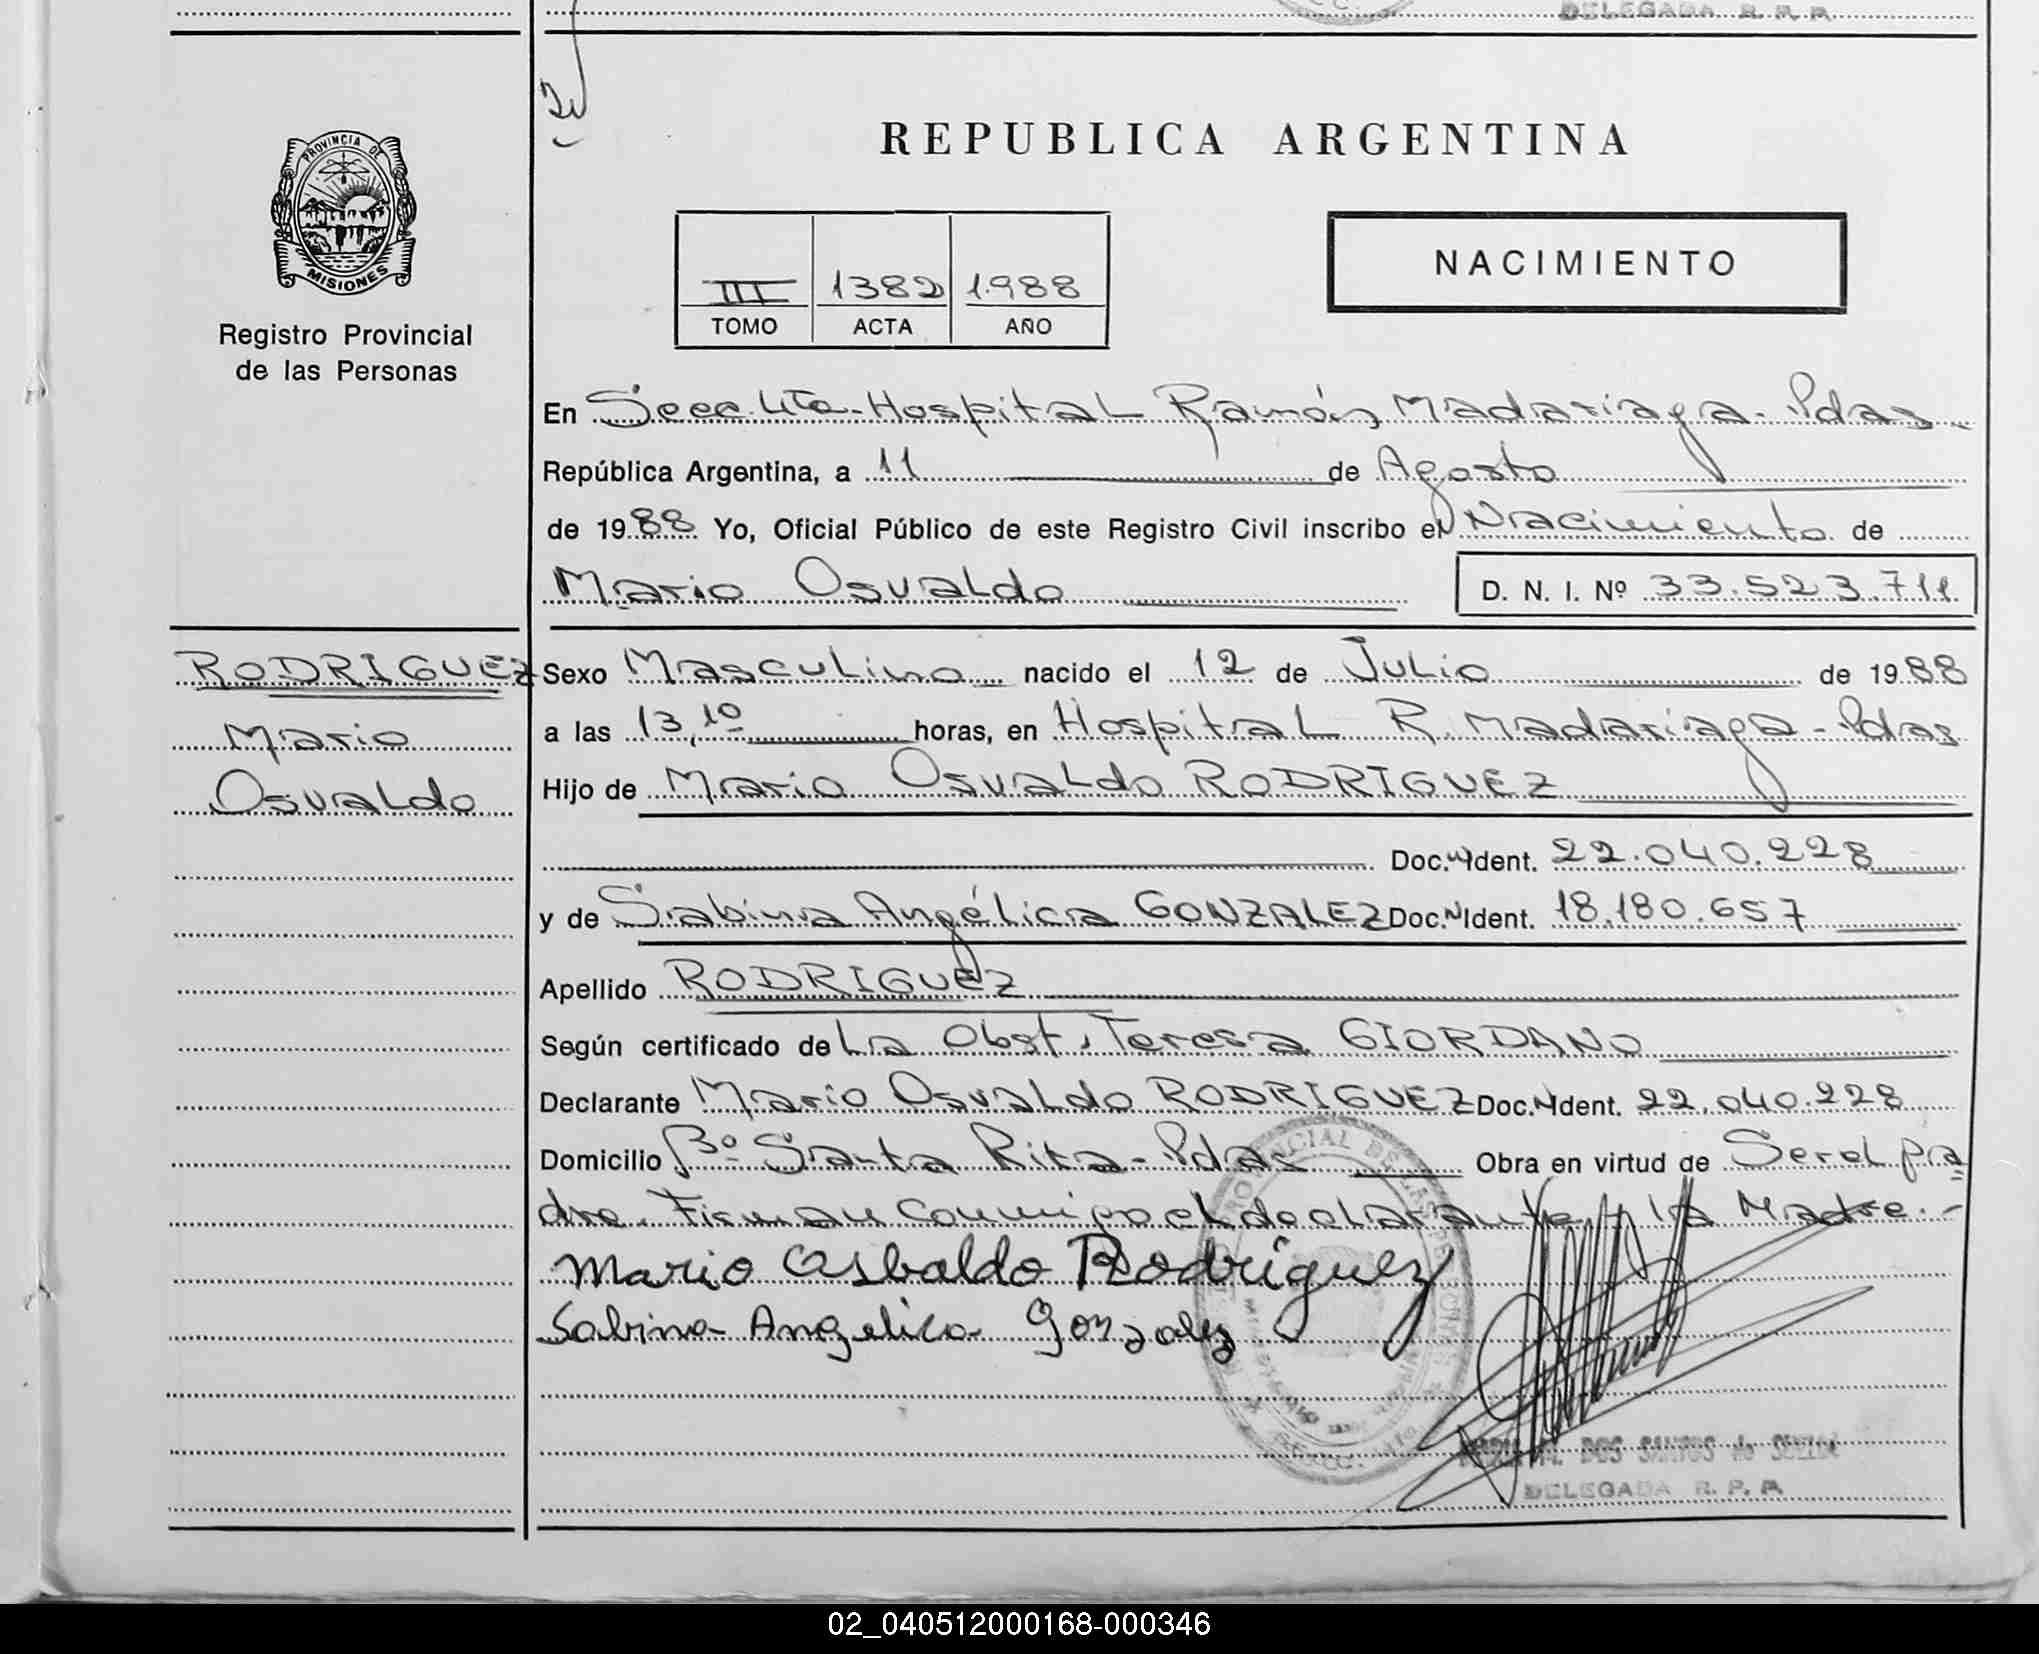 DELEGADA R. P. P.
REPUBLICA ARGENTINA
PROVINCIA DE
MISIONES
Registro Provincial
de las Personas
III 1382 1988
TOMO ACTA AÑO
NACIMIENTO
En Secc. 4ta-Hospital Ramón Madariaga-Pdas
República Argentina, a 11 de Agosto
de 1988 Yo, Oficial Público de este Registro Civil inscribo el Nacimiento de
Mario Osvaldo D. N. I. Nº 33.523.711
RODRIGUEZ
Mario
Osvaldo
Sexo Masculino nacido el 12 de Julio de 1988
a las 13,10 horas, en Hospital R. Madariaga-Pdas
Hijo de Mario Osvaldo RODRIGUEZ
Doc. Ident. 22.040.228
y de Sabina Angélica GONZALEZ Doc. Ident. 18.180.657
Apellido RODRIGUEZ
Según certificado de La Obst. Teresa GIORDANO
Declarante Mario Osvaldo RODRIGUEZ Doc. Ident. 22.040.228
Domicilio Bº Santa Rita-Pdas Obra en virtud de Ser el pa
dre. Firman conmigo el declarante y la Madre.-
Mario Osbaldo Rodríguez
Sabina Angelica Gonzalez
DOS SANTOS de
DELEGADA R. P. P.
02_040512000168-000346